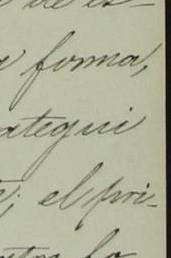 de es-
forma,
ategui
; el pri-